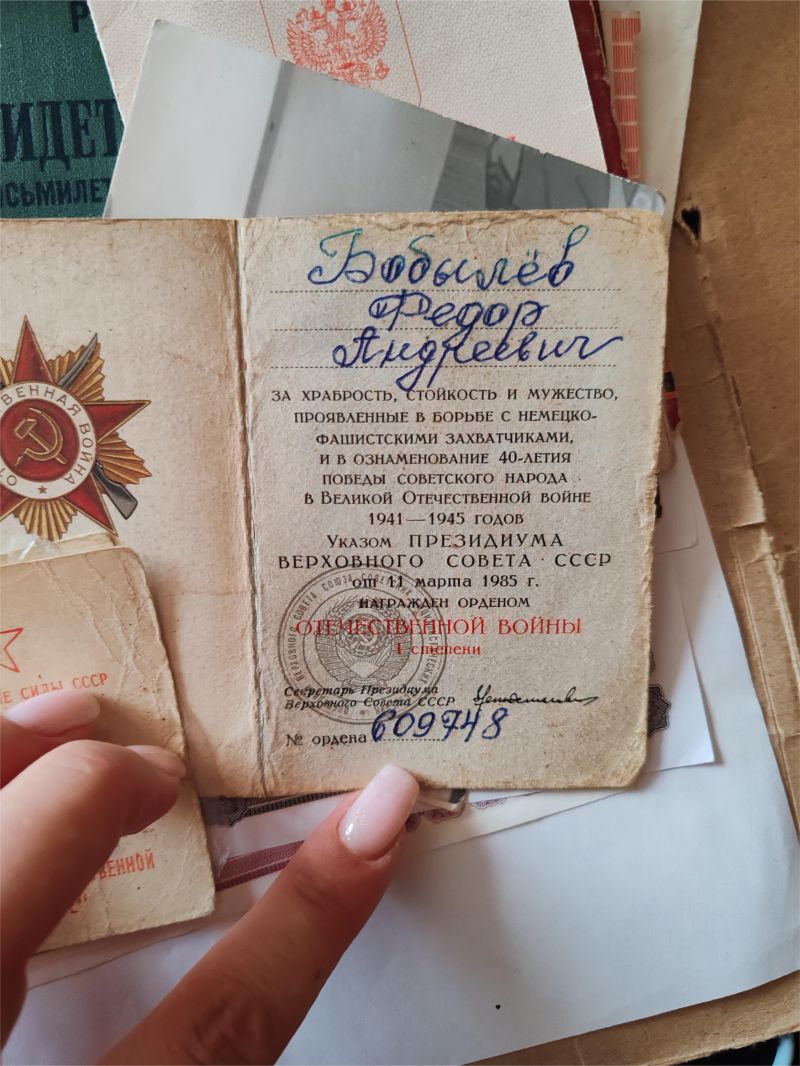 ИДЕТ
ОСЬМИЛЕТ
ОТЕЧЕСТВЕННАЯ ВОЙНА
Бобылёв
Федор
Андреевич
ЗА ХРАБРОСТЬ, СТОЙКОСТЬ И МУЖЕСТВО,
ПРОЯВЛЕННЫЕ В БОРЬБЕ С НЕМЕЦКО-
ФАШИСТСКИМИ ЗАХВАТЧИКАМИ,
И В ОЗНАМЕНОВАНИЕ 40-ЛЕТИЯ
ПОБЕДЫ СОВЕТСКОГО НАРОДА
В ВЕЛИКОЙ ОТЕЧЕСТВЕННОЙ ВОЙНЕ
1941—1945 ГОДОВ
УКАЗОМ ПРЕЗИДИУМА
ВЕРХОВНОГО СОВЕТА СССР
от 11 марта 1985 г.
НАГРАЖДЕН ОРДЕНОМ
ОТЕЧЕСТВЕННОЙ ВОЙНЫ
I степени
Секретарь Президиума
Верховного Совета СССР
№ ордена 609748
Е СИЛЫ СССР
СТВЕННОЙ